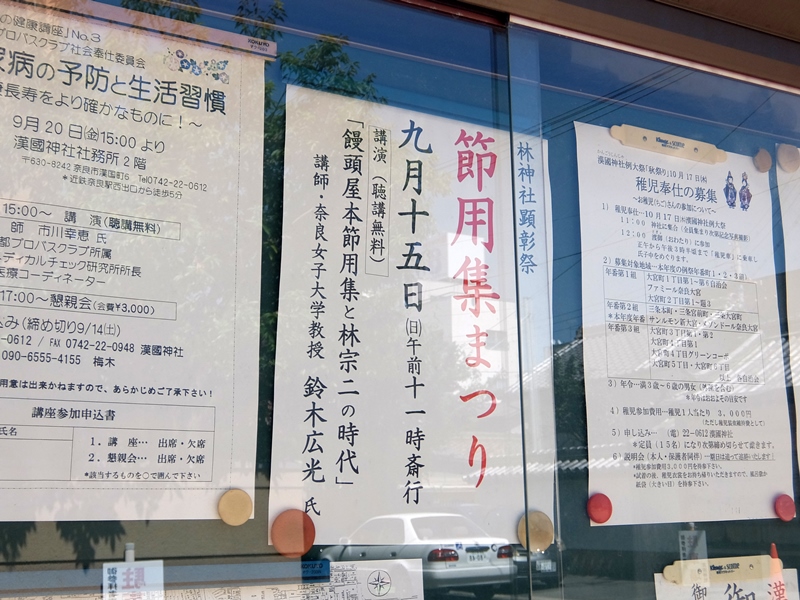 の健康講座」No.3
プロバスクラブ社会奉仕委員会
病の予防と生活習慣
長寿をより確かなものに！～
9月20日㈮15:00より
漢國神社社務所2階
〒630-8242 奈良市漢国町6 Tel0742-22-0612
*近鉄奈良駅西出口から徒歩5分
15:00～ 講 演(聴講無料)
師 市川幸恵 氏
都プロバスクラブ所属
ディカルチェック研究所所長
医療コーディネーター
17:00～懇親会(会費¥3,000)
込み(締め切り9/14㈯)
0612 / FAX 0742-22-0948 漢國神社
090-6555-4155 梅木
用意は出来かねますので、あらかじめご了承下さい！
講座参加申込書
氏名
1．講 座… 出席・欠席
2．懇親会… 出席・欠席
*該当するものを○で囲んで下さい
林神社顕彰祭
節用集まつり
九月十五日㈰午前十一時斎行
講演（聴講無料）
「饅頭屋本節用集と林宗二の時代」
講師・奈良女子大学教授 鈴木広光 氏
漢國神社例大祭「秋祭り」10月17日㈭
稚児奉仕の募集
～お稚児(ちご)さんの参加について～
1）稚児奉仕…10月17日㈭漢國神社例大祭
11：00 神社に集合（全員集まり次第記念写真撮影）
12：00 渡御（おわたり）に参加
2）募集対象地域―本年度の例祭年番町(1・2・3週)
年番第1組
大宮町1丁目第1～第6自治会
ファミール奈良大宮
大宮町2丁目第1～第3
年番第2組
三条本町・三条宮前町・三条大宮町
*本年度年番
サンルモン新大宮
年番第3組
大宮町4丁目グリーンコーポ
大宮町5丁目・大宮町6丁目
3）年令―満3歳～6歳の男女
4）稚児参加費用―稚児1人当たり 3,000円
5）申し込み…（電）22-0612漢國神社
*定員（15名）になり次第締め切らせて戴きます。
6）説明会（本人・保護者同伴）
*稚児参加費3,000円を持参下さい。
紙袋（大きい目）を持参下さい。
漢
御